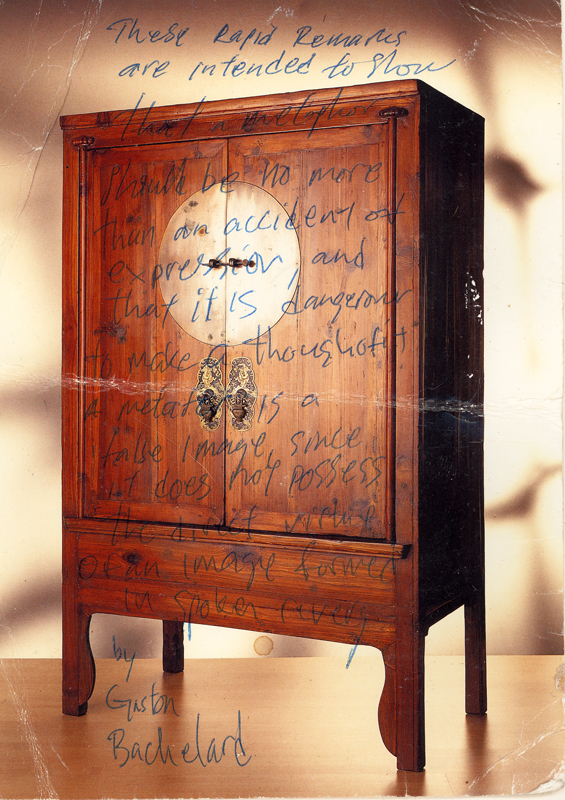 These Rapid Remarks
are intended to show
that a metaphor
should be no more
than an accident of
expression, and
that it is dangerous
to make a thought of it
a metaphor is a
false image, since
it does not possess
the direct virtue
of an image formed
in spoken revery.
by
Gaston
Bachelard